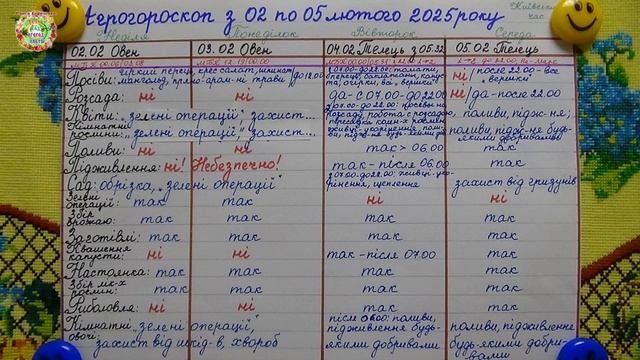 Агрогороскоп з 02 по 05 лютого 2025 року
Київський час
Неділя Понеділок Вівторок Середа
02.02 Овен 03.02 Овен 04.02 Телець з 05.32 05.02 Телець
Посіви: гіркий перець, крес салат, шпинат, мангольд, прямо-аром-ні трави до 12.00
ні/ після 22.00 - все "вершки"
Розсада: ні ні да - с 07.00 - до 22.00 ні/да - после 22.00
Квіти: "зелені операції", захист...
поливи, підж-не;
Кімнатні рослини: "зелені операції", захист...
поливи, підж-не будь-якими добривами
Поливи: ні ні так > 06.00 так
Підживлення: ні! Небезпечно! так - після 06.00 так
Сад: обрізка, "зелені операції"
захист від гризунів
Зелені операції: так так ні ні
Збір врожаю: так так так так
Заготівлі: так так так так
Квашення капусти: ні ні так - після 07.00 ні
Настоянка: так так так так
Збір лік-х рослин: так так так так
Риболовля: ні ні так так
Кімнатні овочі: "зелені операції", захист від шкід-в, хвороб
після 06.00: поливи, підживлення будь-якими добривами
поливи, підживлення будь-якими добри-вами